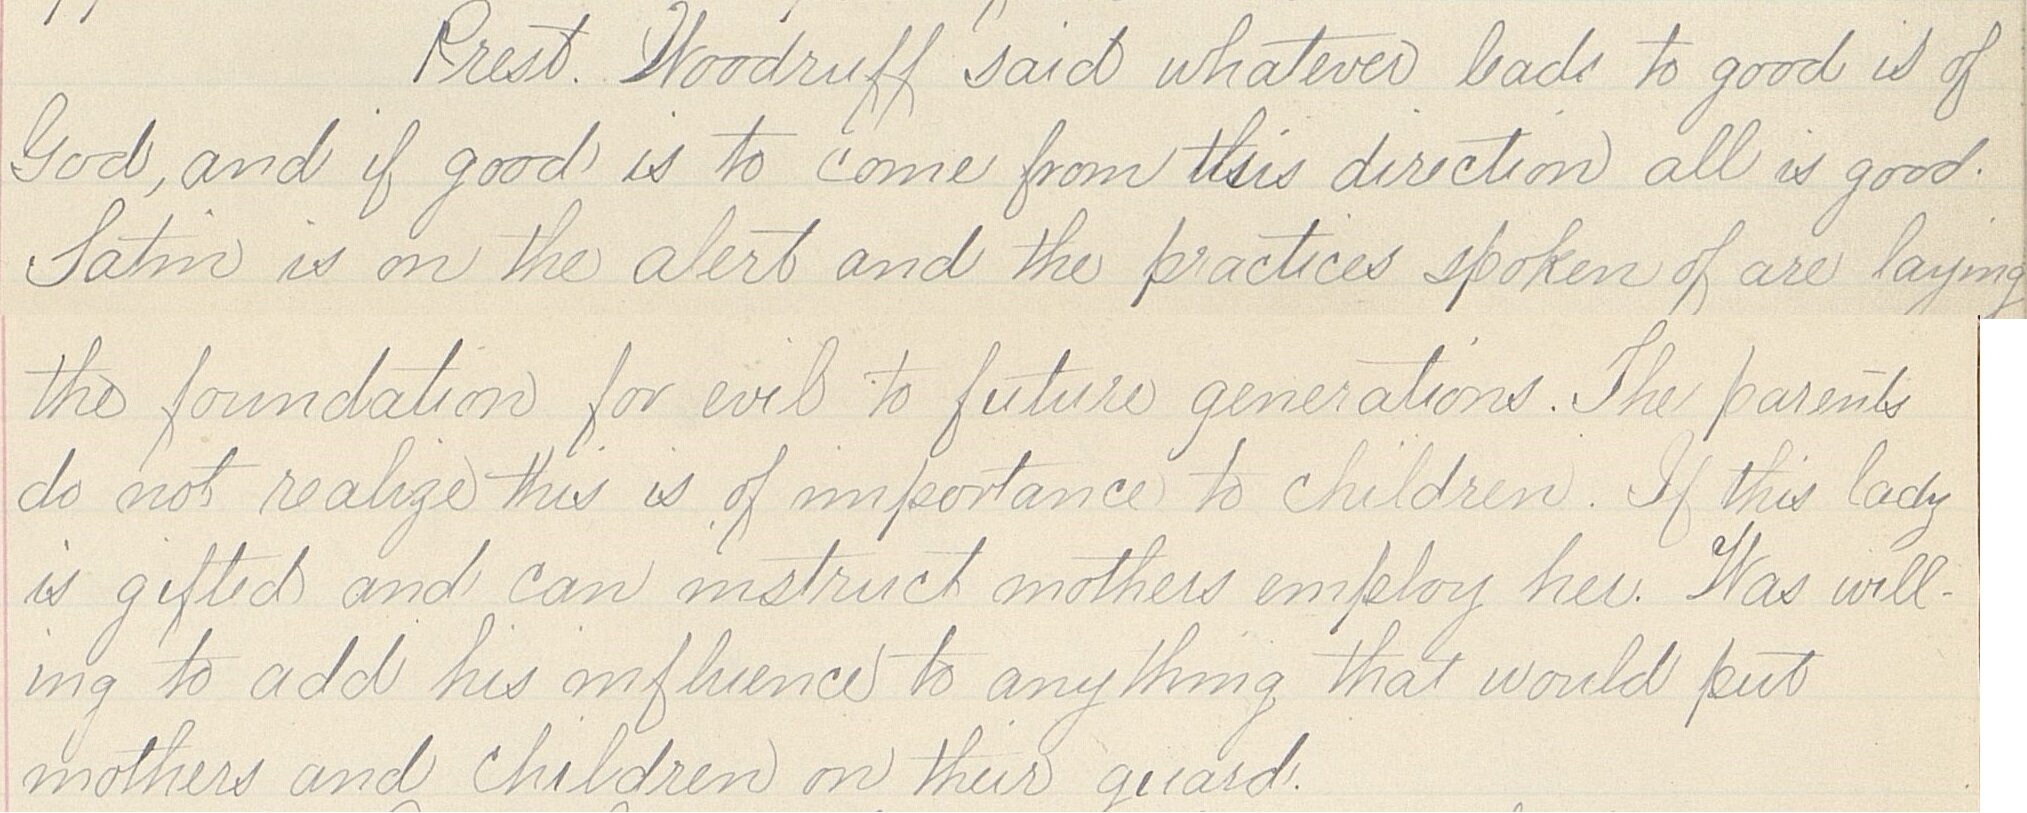 Prest. Woodruff said whatever leads to good is of
God, and if good is to come from this direction all is good.
Satin is on the alert and the practices spoken of are laying
the foundation for evil to future generations. The parents
do not realize this is of importance to children. If this lady
is gifted and can instruct mothers employ her. Was will-
ing to add his influence to anything that would put
mothers and children on their guard.